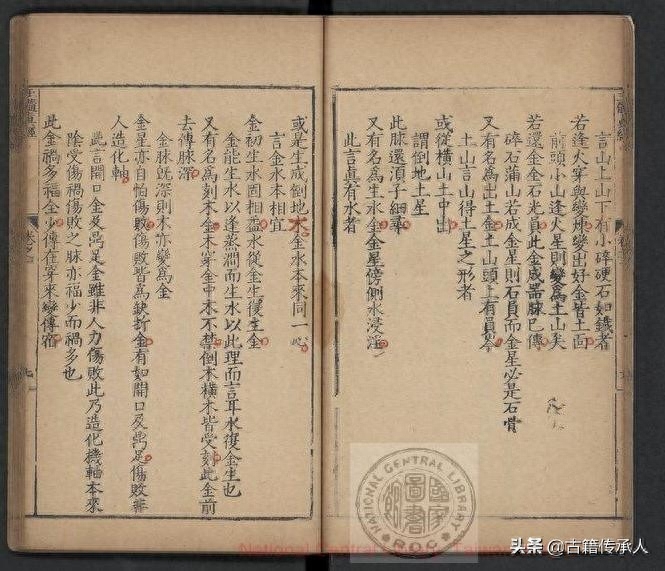 言山上山下有小碎硬石如鐵者
若逢火穿與變煉變出好金皆土面
前頭小山逢火星則變為土山矣
若還金全石光員此金成器脉已傳
碎石蒲山若成金星則石員而金星必是石骨
又有名為出土金土山頭上有員峯
土山言山得土星之形者
或從橫山土中出
謂倒地土星
此脉還湏子細尋
又有名為生水金金星傍側水浸淫
此言真有水者
或是生成倒地水金水本來同一心
言金水本相宜
金初生水固相益水從金生復生金
金能生水以逢蒸潤而生水以此理而言耳水復金生也
又有名為刻木金木穿金中木不禁倒木橫木皆受刻此金前
去傳脉深
金脉既深則木亦變為金
金星亦自怕傷敗傷敗皆為缺折金有如開口及鼎足傷敗非
人造化軸
此言開口金及鼎足金雖非人力傷敗此乃造化機軸本來
除受傷禍傷敗之脉亦福少而禍多也
此金禍多福全少傳在穿來變傳宿
NATIONAL CENTRAL LIBRARY
R.O.C.
國家圖書館
National Central
头条 @古籍传承人